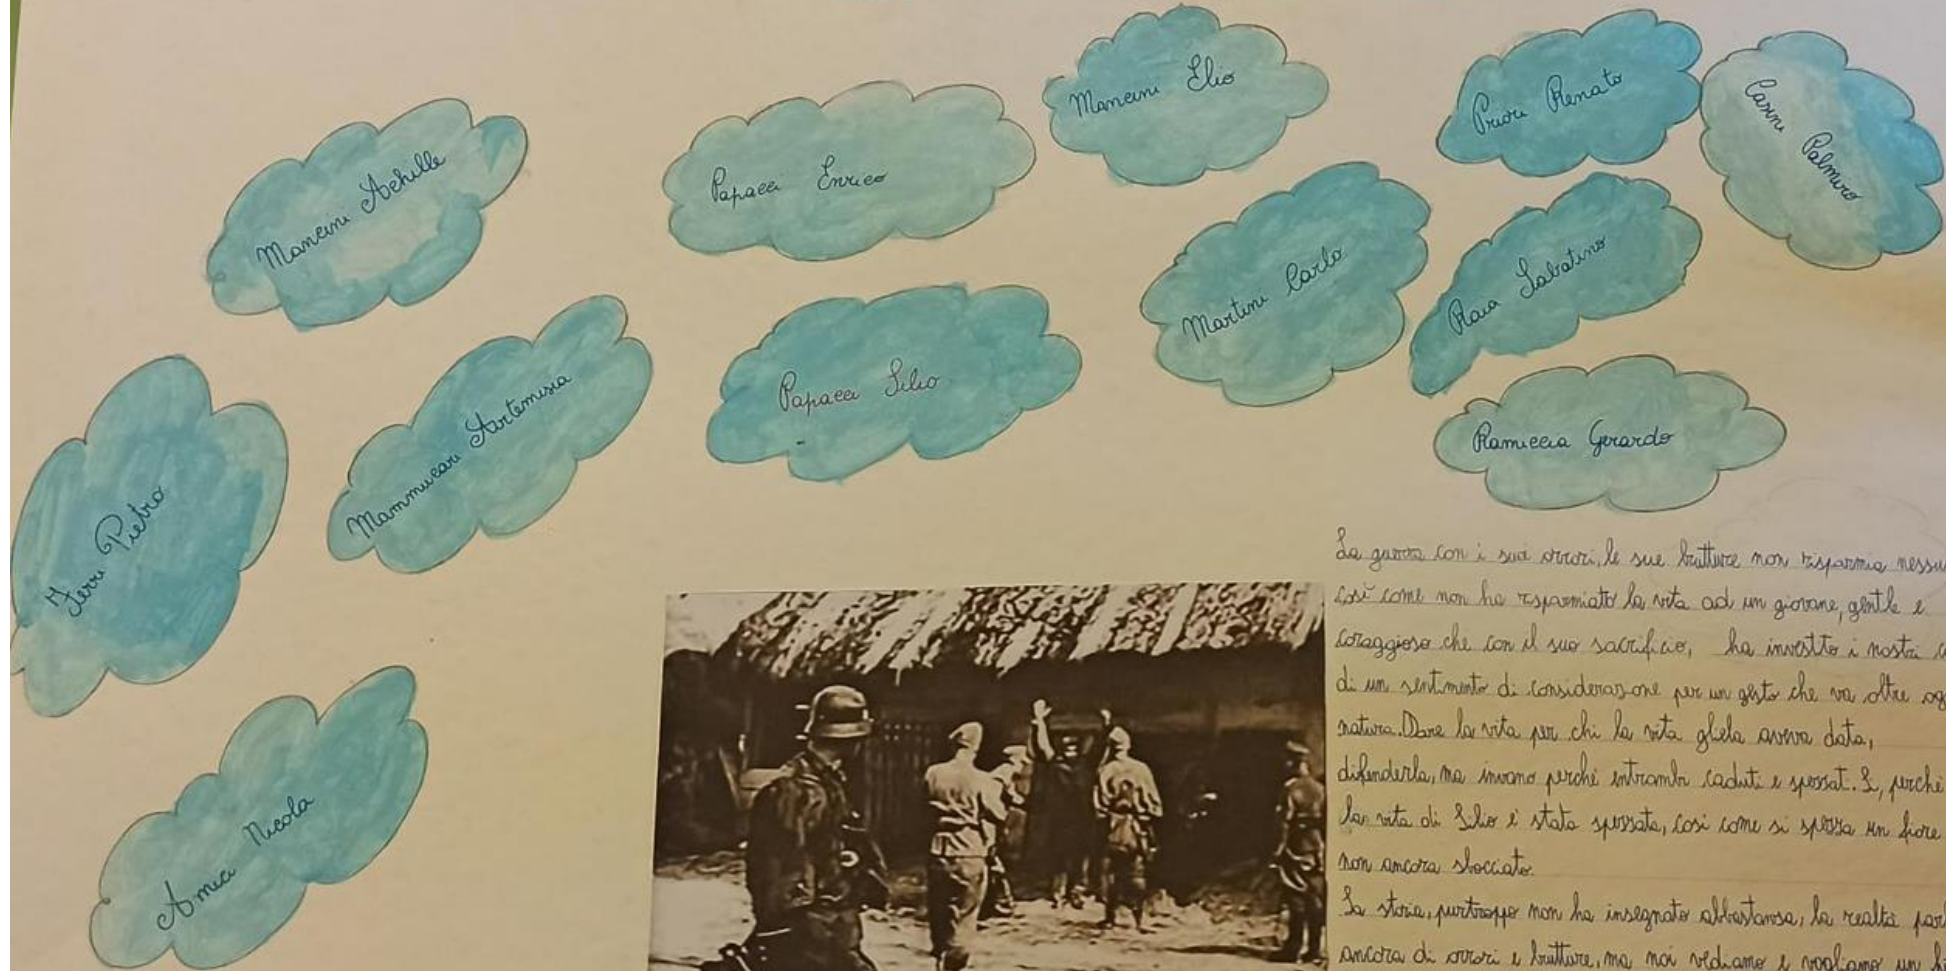 Mancini Elio
Priori Renato
Casini Palmiro
Mancini Achille
Papacci Enrico
Martini Carlo
Raia Sabatino
Mammucari Artemisia
Papacci Silio
Ramiccia Gerardo
Ferri Pietro
Amici Nicola
La guerra con i suoi orrori, le sue brutture non risparmia nessu
così come non ha risparmiato la vita ad un giovane, gentile e
coraggioso che con il suo sacrificio, ha investito i nostri
di un sentimento di considerazione per un gesto che va oltre og
natura. Dare la vita per chi la vita gliela aveva data,
difenderla, ma invano perché entrambi caduti e spezzati. Sì, perché
la vita di Silio è stata spezzata, così come si spezza un fiore
non ancora sbocciato.
La storia, purtroppo non ha insegnato abbastanza, la realtà parl
ancora di orrori e brutture, ma noi vediamo e vogliamo un